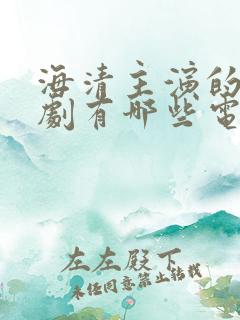 海清主演的
劇有哪些電
左左殿下
未任同意禁止转载